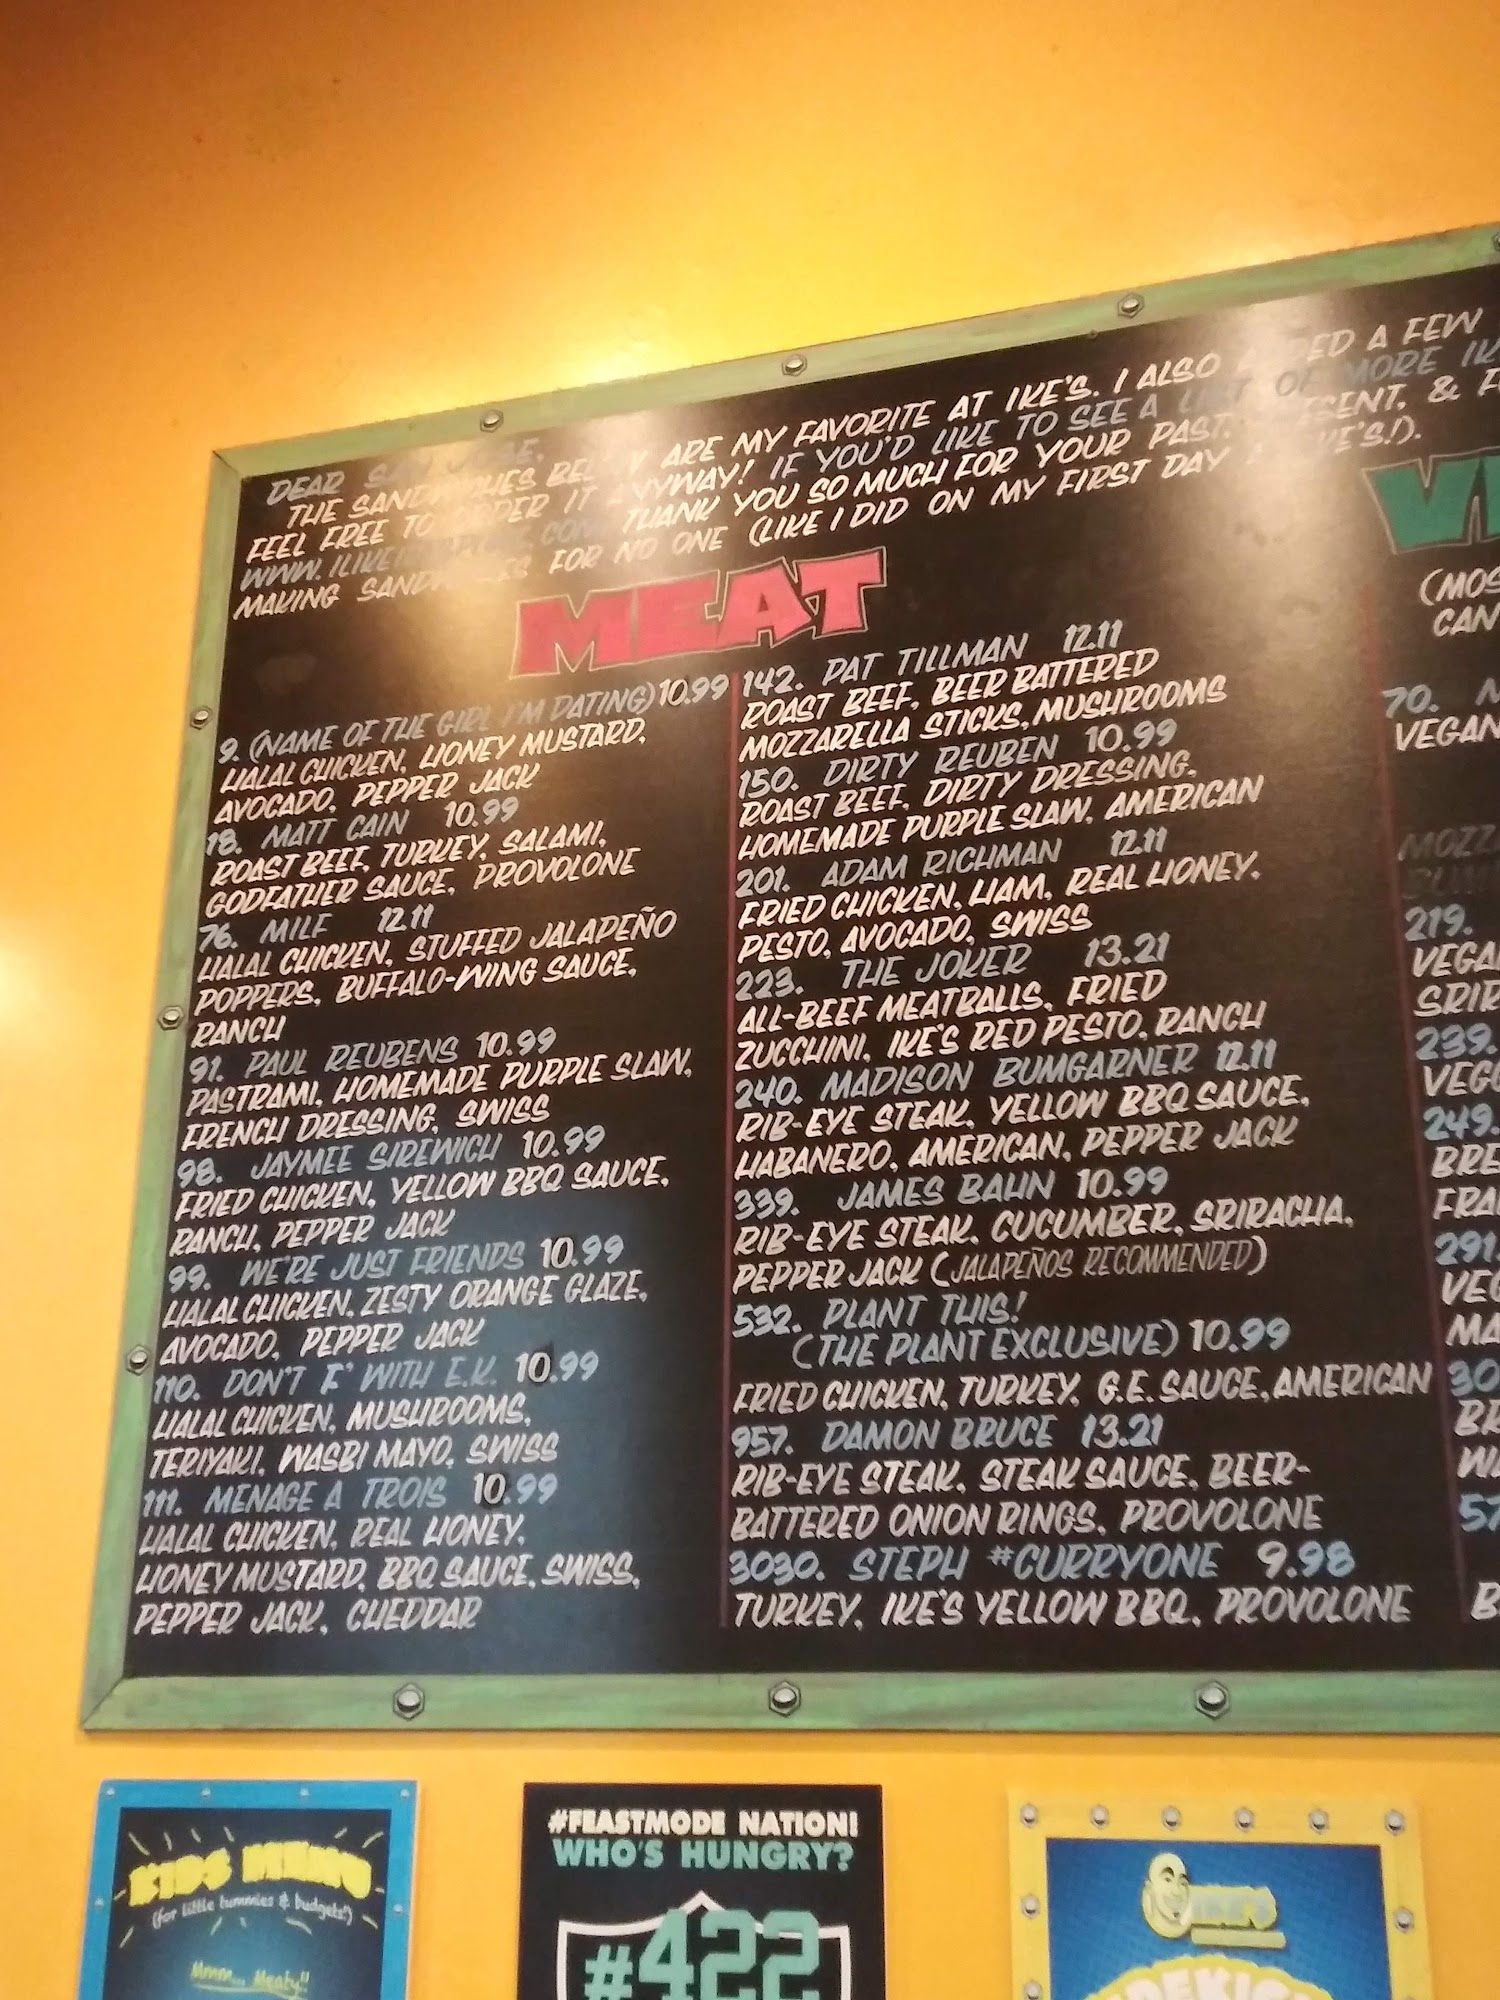 DEAR
THE SANDWICHES BELOW ARE MY FAVORITE AT IKE'S. I ALSO A FEW
FEEL FREE TO ORDER IT ANYWAY! IF YOU'D LIKE TO SEE A LIST OF MORE
WWW. THANK YOU SO MUCH FOR YOUR PAST, PRESENT, &
MAKING SANDWICHES FOR NO ONE (LIKE I DID ON MY FIRST DAY IKE'S!).
MEAT
9. (NAME OF THE GIRL I'M DATING) 10.99
HALAL CHICKEN, HONEY MUSTARD,
AVOCADO, PEPPER JACK
18. MATT CAIN 10.99
ROAST BEEF, TURKEY, SALAMI,
GODFATHER SAUCE, PROVOLONE
76. MILF 12.11
HALAL CHICKEN, STUFFED JALAPEÑO
POPPERS, BUFFALO-WING SAUCE,
RANCH
91. PAUL REUBENS 10.99
PASTRAMI, HOMEMADE PURPLE SLAW,
FRENCH DRESSING, SWISS
98. JAYMEE SIREWICH 10.99
FRIED CHICKEN, YELLOW BBQ SAUCE,
RANCH, PEPPER JACK
99. WE'RE JUST FRIENDS 10.99
HALAL CHICKEN, ZESTY ORANGE GLAZE,
AVOCADO, PEPPER JACK
110. DON'T F' WITH E.K. 10.99
HALAL CHICKEN, MUSHROOMS,
TERIYAKI, WASBI MAYO, SWISS
111. MENAGE A TROIS 10.99
HALAL CHICKEN, REAL HONEY,
HONEY MUSTARD, BBQ SAUCE, SWISS,
PEPPER JACK, CHEDDAR
142. PAT TILLMAN 12.11
ROAST BEEF, BEER BATTERED
MOZZARELLA STICKS, MUSHROOMS
150. DIRTY REUBEN 10.99
ROAST BEEF, DIRTY DRESSING,
HOMEMADE PURPLE SLAW, AMERICAN
201. ADAM RICHMAN 12.11
FRIED CHICKEN, HAM, REAL HONEY,
PESTO, AVOCADO, SWISS
223. THE JOKER 13.21
ALL-BEEF MEATBALLS, FRIED
ZUCCHINI, IKE'S RED PESTO, RANCH
240. MADISON BUMGARNER 12.11
RIB-EYE STEAK, YELLOW BBQ SAUCE,
HABANERO, AMERICAN, PEPPER JACK
339. JAMES BAHN 10.99
RIB-EYE STEAK, CUCUMBER, SRIRACHA,
PEPPER JACK (JALAPEÑOS RECOMMENDED)
532. PLANT THIS!
(THE PLANT EXCLUSIVE) 10.99
FRIED CHICKEN, TURKEY, G.E. SAUCE, AMERICAN
957. DAMON BRUCE 13.21
RIB-EYE STEAK, STEAK SAUCE, BEER-
BATTERED ONION RINGS, PROVOLONE
3030. STEPH #CURRYONE 9.98
TURKEY, IKE'S YELLOW BBQ, PROVOLONE
(MOS
CAN
70.
VEGAN
219.
VEGA
SRIR
239.
VEGG
249.
BRE
FRA
291.
VEG
MA
30
BR
57
B
KIDS MENU
(for little tummies & budgets!)
Mmm... Meaty!!
#FEASTMODE NATION!
WHO'S HUNGRY?
#422
IKE'S